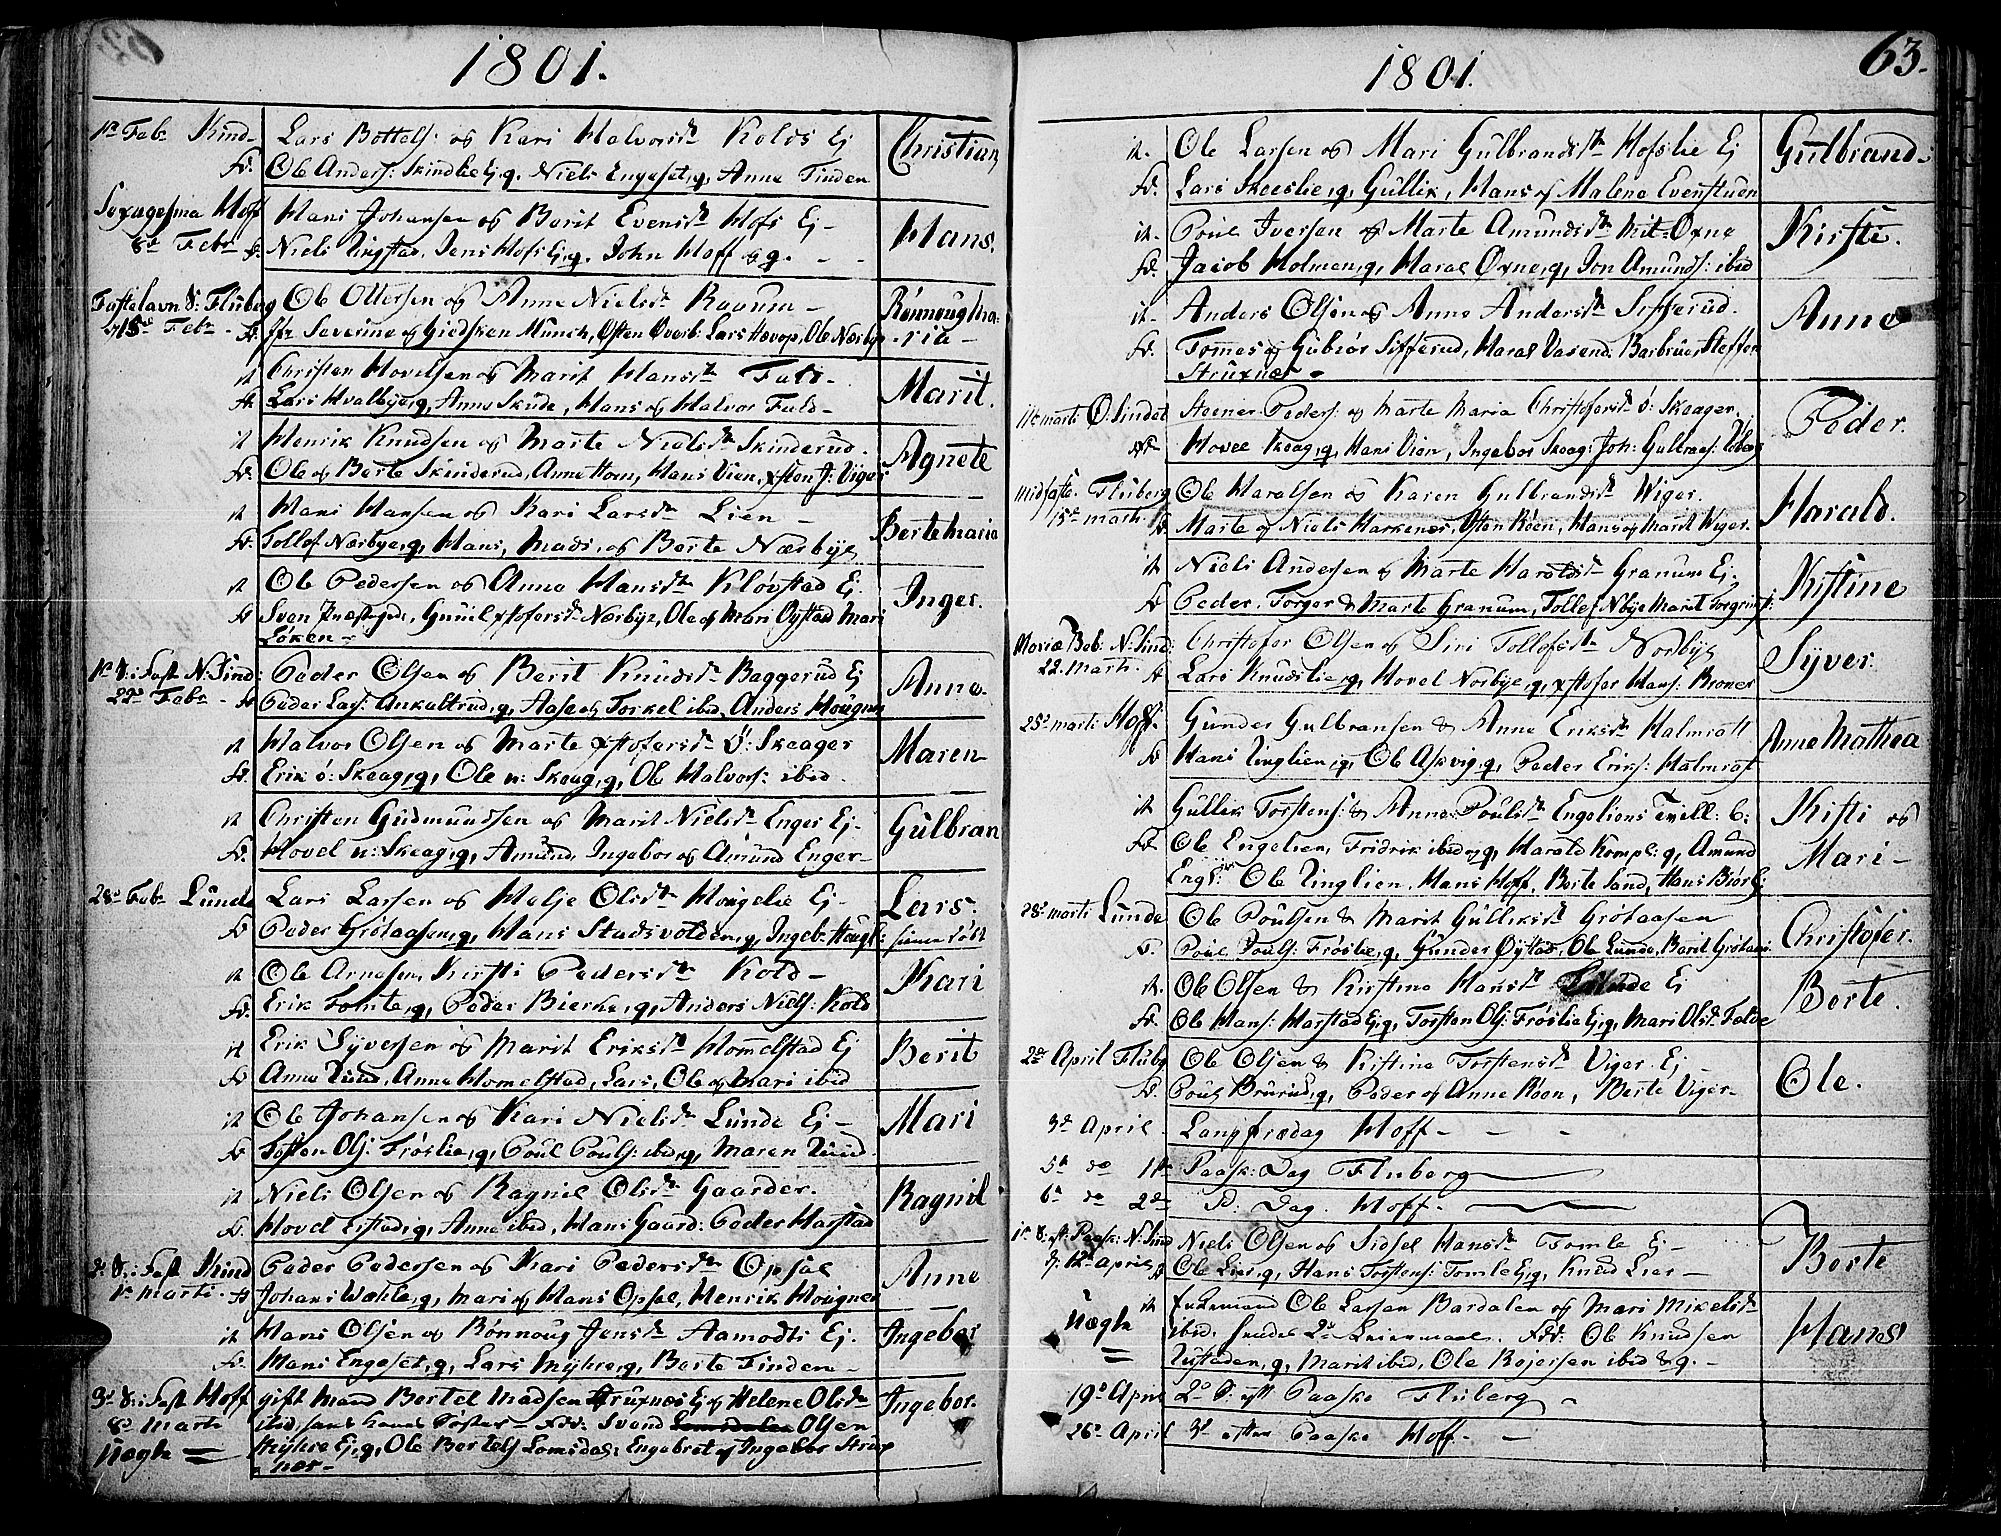 1801.
1ste Feb. Kind- Lars Bottels: og Kari Halvorsdr Kolds Ej Christian
Fd. Ole Anders: Skindlie Ej, q, Niels Engeset, q, Anne Finden
Sexagesima Hoff Hans Johansen og Berit Evensdr Hofs Ej - Hans.
8de Febr Fd. Niels Ringstad, Jens Hofs Ej, q, John Hoff og q. - -
Fastelavn S: Fluberg Ole Ottersen og Anne Nielsdr Røuum - Rønnoug Ma-
15de Febr. Fd. Jfr Severine og Giedsken Münch, Østen Overb: Lars Hovop, Ole Nærbye -rie-
it Christen Hovelsen og Marit Hansdr Fald- Marit.
Fd. Lars Hvalbye, q, Anne Skute, Hans og Halvor Fald-
it Henrik Knudsen og Marte Nielsdr Skinderud. Agnete
Fd. Ole og Berte Skinderud, Anne Horn, Hans Vien, Østen J: Viger
it Hans Hansen og Kari Larsdr Lien - Berte Maria
Fd. Tollef Nærbye, q, Hans, Mads, og Berte Næsbye
it Ole Pedersen og Anne Hansdr Kløvstad Ej. Inger.
Fd Sven Præstegrd, Gunil Xstofersdr Nærbye, Ole og Mari Øystad Mari
Løken-
1ste S: i Fast N. Sind: Peder Olsen og Berit Knudsdr Baggerud Ej Anne.
22de Febr - Fd Peder Lars: Ankaltrud, q, Aase og Torkel ibid, Anders Hougner
it Halvor Olsen og Marte Xstofersdr ø: Skeager Maren
Fd. Erik ø: Skeag, q, Ole n: Skeag, q, Ole Halvors: ibid.
it Christen Gudmundsen og Marit Nielsdr Enger Ej- Gulbran
Fd. Hovel n: Skeag, q, Amund, Ingebor og Amund Enger-
28de Febr Lunde Lars Larsen og Helje Olsdr Hougslie Ej- Lars.
Fd Peder Grötaasen, q, Hans Stadsvolden, q, Ingeb: Hougsl:
it Ole Arnesen, Kirsti Pedersdr Kold- Kari
Fd. Erik Tomte, q, Peder Bierke, q, Anders Niels: Kold
it Erik Syversen og Marit Eriksdr Hommelstad Ej Berit
Fd Anne Lund, Anne Homelstad, Lars, Ole og Mari ibid
it Ole Johansen og Kari Nielsdr Lunde Ej - Mari
Fd Tosten Ols: Frøslie, q, Poul Pouls: ibid, q, Maren Lund.
it Niels Olsen og Ragnil Olsdr Gaarder. Ragnil
Fd. Hovel Eistad, q, Anne ibid, Hans Gaard: Peder Harstad
2de S: i Fast Kind Peder Pedersen og Kari Pedersdr Opsal Anne
1ste Marti. Fd Johans Wahle, q, Mari og Hans Opsal, Henrik Hougner
it Hans Olsen og Rønnoug Jensdr Aamodts Ej. Ingebor
Fd. Hans Engeset, q, Lars Myhre, q, Berte Finden -
3de S: i Fast Hoff gift Mand Bertel Madsen Struxnæs Ej og Helene Olsdr Ingebor.
8de Martii ibid Fdr: Svend Olsen
Uægte = Myhre Ej, q, Ole Bertels Lomsdal: Engebret og Ingebor Strux
næs-
1801. 63.
it. Ole Larsen og Mari Gulbrandsdr Hofslie Ej Gulbrand
Fd. Lars Skeeslie, q, Gullik, Hans og Malene Everstuen
it. Poul Iversen og Marte Amundsdr Mit-Oxne Kirsti.
Fd. Jacob Holmen, q, Haral Oxne, q, Jon Amunds: ibid
it. Anders Olsen og Anne Andersdr Sifferud. Anne
Fd. Tomes og Gubiør Sifferud, Haral Vasend: Barbrue, Steffen
Struxnæs
11te Marti Ø. Sindet Steener Peders: og Marte Maria Christofersdr ø: Skeager. Peder.
Fd. Hovel Skeag, q, Hans Vien, Ingebor Skeag: Joh: Gulbras: Udberg
Midfaste. Fluberg Ole Haralsen og Karen Gulbrandsdr Wiger. Harald.
15de Marti Fd. Marte og Niels Harkenæs, Østen Røen, Hans og Marit Wiger.
it Niels Andersen og Marte Haroldsdr Granum Ej. Kistine
Fd Peder, Torger & Marte Granum, Tollef Nbye, Marit Torgrims:
Mariæ Beb: N. Sind: Christofer Olsen og Siri Tollofsdr Norbye Syver.
22. Marti. Fd Lars Knudslie, q, Hovel Norbye, q, Xstofer Hans: Broner
25de Marti Hoff. Gunder Gulbransen & Anne Eriksdr Halmrast Anne Mathea
Fd Hans Ringlien, q, Ole Askvig, q, Peder Eriks: Halmrast
it Gullik Torstens: & Anne Poulsdr Engeliens Tvill: b: Kisti og
Fd. Ole Engelien, Fridrik ibid, q, Harald Kompl: q, Amund Mari-
Engl: Ole Ringlien, Hans Hoff, Berte Sand, Hans Biørl:
28de Marti Lunde Ole Poulsen & Marit Gulliksdr Grøtaasen Christofer.
Fd. Poul Pouls: Frøslie, q, Gunder Øystad, Ole Lunde, Berit Grøtaas
it. Ole Olsen & Kirstine Hansdr Ej Berte.
Fd. Ole Hans: Harstad Ej, q, Torsten Ols: Frøslie Ej, q, Mari Olsdr Falde
2den April Flubg Ole Olsen & Kirstine Torstensdr Viger Ej - Ole.
Fd. Poul Bruruds, q, Peder og Anne Røen, Berte Viger-
3de April - Langfredag Hoff - - -
5te do 1ste Paask: Dag Fluberg
6te do 2den D: Dag. Hoff.
1ste S: ef: Paask: N. Sind Niels Olsen og Sidsel Hansdr Tomle Ej - Berte
d: 12te April Fd Ole Lier, q, Hans Torstens: Tomle Ej, q, Knud Lier -
Uægte it Ole Larsen Bardalen og Mari Mikelsdr Hans
= ibid. 2de Leiermaal. Fdr: Ole Knudsen
q, Marit ibid, Ole Rejersen ibid & q. -
19de April 2den S: eft Paaske Fluberg
26de April 3de efter Paaske Hoff. -